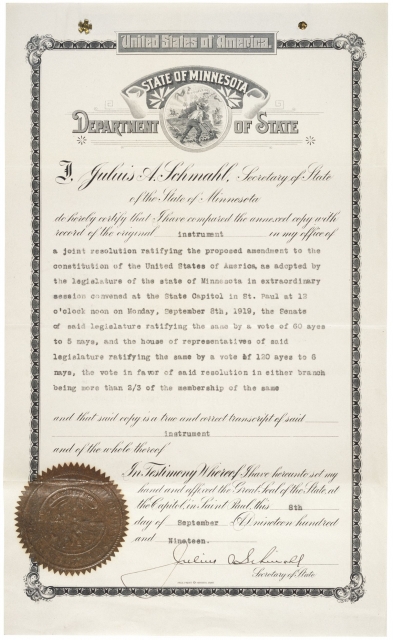 United States of America.
STATE OF MINNESOTA
DEPARTMENT OF STATE
I, Julius A. Schmahl, Secretary of State
of the State of Minnesota
do hereby certify that I have compared the annexed copy with
record of the original instrument in my office of
a joint resolution ratifying the proposed amendment to the
constitution of the United States of America, as adopted by
the legislature of the state of Minnesota in extraordinary
session convened at the State Capitol in St. Paul at 12
o'clock noon on Monday, September 8th, 1919, the Senate
of said legislature ratifying the same by a vote of 60 ayes
to 5 nays, and the house of representatives of said
legislature ratifying the same by a vote of 120 ayes to 6
nays, the vote in favor of said resolution in either branch
being more than 2/3 of the membership of the same
and that said copy is a true and correct transcript of said
instrument
and of the whole thereof
In Testimony Whereof I have hereunto set my
hand and affixed the Great Seal of the State, at
the Capitol, in Saint Paul, this 8th
day of September A.D. nineteen hundred
and Nineteen.
Julius A Schmahl
Secretary of State